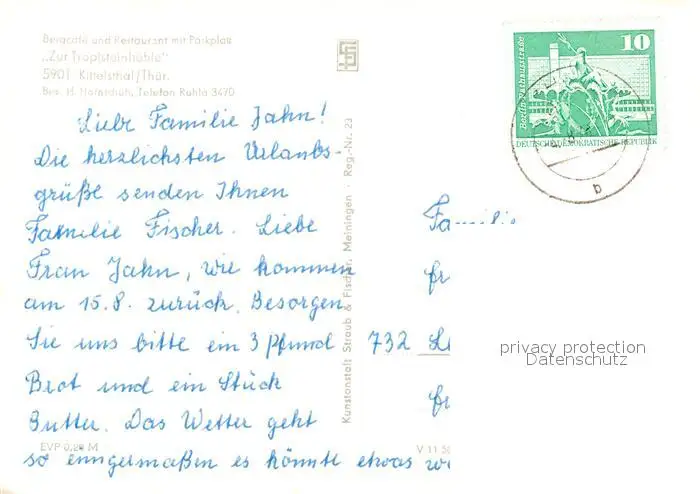 Bergcafé und Restaurant mit Parkplatz
„Zur Tropfsteinhöhle"
5901 Kittelsthal/Thür.
Bes. H. Telefon Ruhla 3470
10
Berlin, Rathausstraße
DEUTSCHE DEMOKRATISCHE REPUBLIK
b
Liebe Familie Jahn!
Die herzlichsten Urlaubs-
grüße senden Ihnen
Familie Fischer. Liebe
Frau Jahn, wie kommen
am 15.8. zurück. Besorgen
Sie uns bitte ein 3 Pfund
Brot und ein Stück
Butter. Das Wetter geht
so einngermaßen es könnte etwas
Kunstanstalt Straub & Fischer, Meiningen · Reg.-Nr. 23
Familie
732
EVP 0,20 M
V 11 50
privacy protection
Datenschutz